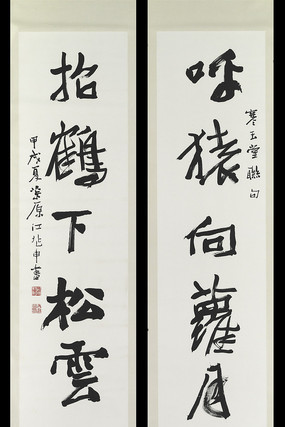 呼猿向蘿月
寒玉堂聯句
招鶴下松雲
甲戌夏 原江兆申書